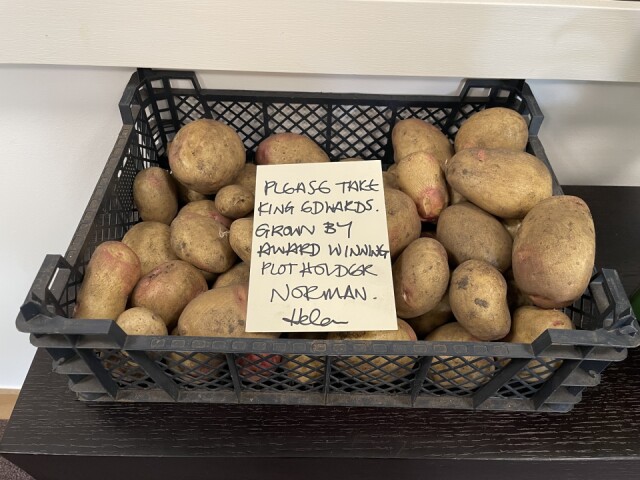 PLEASE TAKE
KING EDWARDS.
GROWN BY
AWARD WINNING
PLOT HOLDER
NORMAN.
Helen